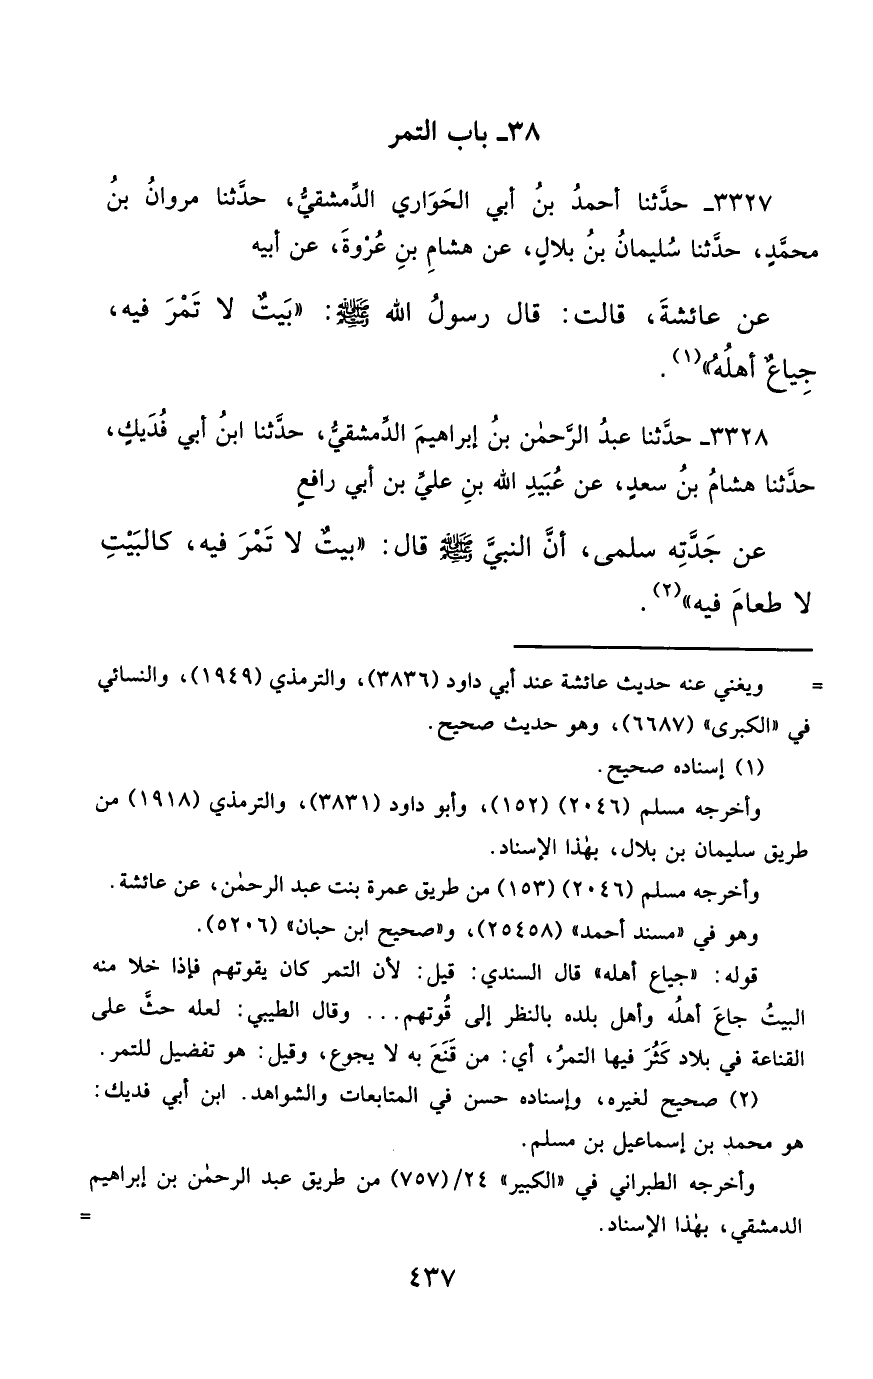 ٣٨ـ باب التمر
٣٣٢٧ـ حدَّثنا أحمدُ بنُ أبي الحَوَاري الدِّمشقيُّ، حدَّثنا مروانُ بنُ
محمَّدٍ، حدَّثنا سُليمانُ بنُ بلالٍ، عن هشامِ بنِ عُرْوةَ، عن أبيه
عن عائشةَ، قالت: قال رسولُ الله ﷺ: «بَيتٌ لا تَمْرَ فيه،
جِياعٌ أهلُهُ»(١).
٣٣٢٨ـ حدَّثنا عبدُ الرَّحمٰن بنُ إبراهيمَ الدِّمشقيُّ، حدَّثنا ابنُ أبي فُدَيكٍ،
حدَّثنا هشامُ بنُ سعدٍ، عن عُبَيدِ الله بنِ عليِّ بن أبي رافعٍ
عن جَدَّتِه سلمى، أنَّ النبيَّ ﷺ قال: «بيتٌ لا تَمْرَ فيه، كالبَيْتِ
لا طعامَ فيه»(٢).
= ويغني عنه حديث عائشة عند أبي داود (٣٨٣٦)، والترمذي (١٩٤٩)، والنسائي
في «الكبرى» (٦٦٨٧)، وهو حديث صحيح.
(١) إسناده صحيح.
وأخرجه مسلم (٢٠٤٦) (١٥٢)، وأبو داود (٣٨٣١)، والترمذي (١٩١٨) من
طريق سليمان بن بلال، بهٰذا الإسناد.
وأخرجه مسلم (٢٠٤٦) (١٥٣) من طريق عمرة بنت عبد الرحمٰن، عن عائشة.
وهو في «مسند أحمد» (٢٥٤٥٨)، و«صحيح ابن حبان» (٥٢٠٦).
قوله: «جياع أهله» قال السندي: قيل: لأن التمر كان يقوتهم فإذا خلا منه
البيتُ جاعَ أهلُه وأهل بلده بالنظر إلى قُوتهم... وقال الطيبي: لعله حثَّ على
القناعة في بلاد كَثُرَ فيها التمرُ، أي: من قَنَعَ به لا يجوع، وقيل: هو تفضيل للتمر.
(٢) صحيح لغيره، وإسناده حسن في المتابعات والشواهد. ابن أبي فديك:
هو محمد بن إسماعيل بن مسلم.
وأخرجه الطبراني في «الكبير» ٢٤/ (٧٥٧) من طريق عبد الرحمٰن بن إبراهيم
الدمشقي، بهٰذا الإسناد. =
٤٣٧